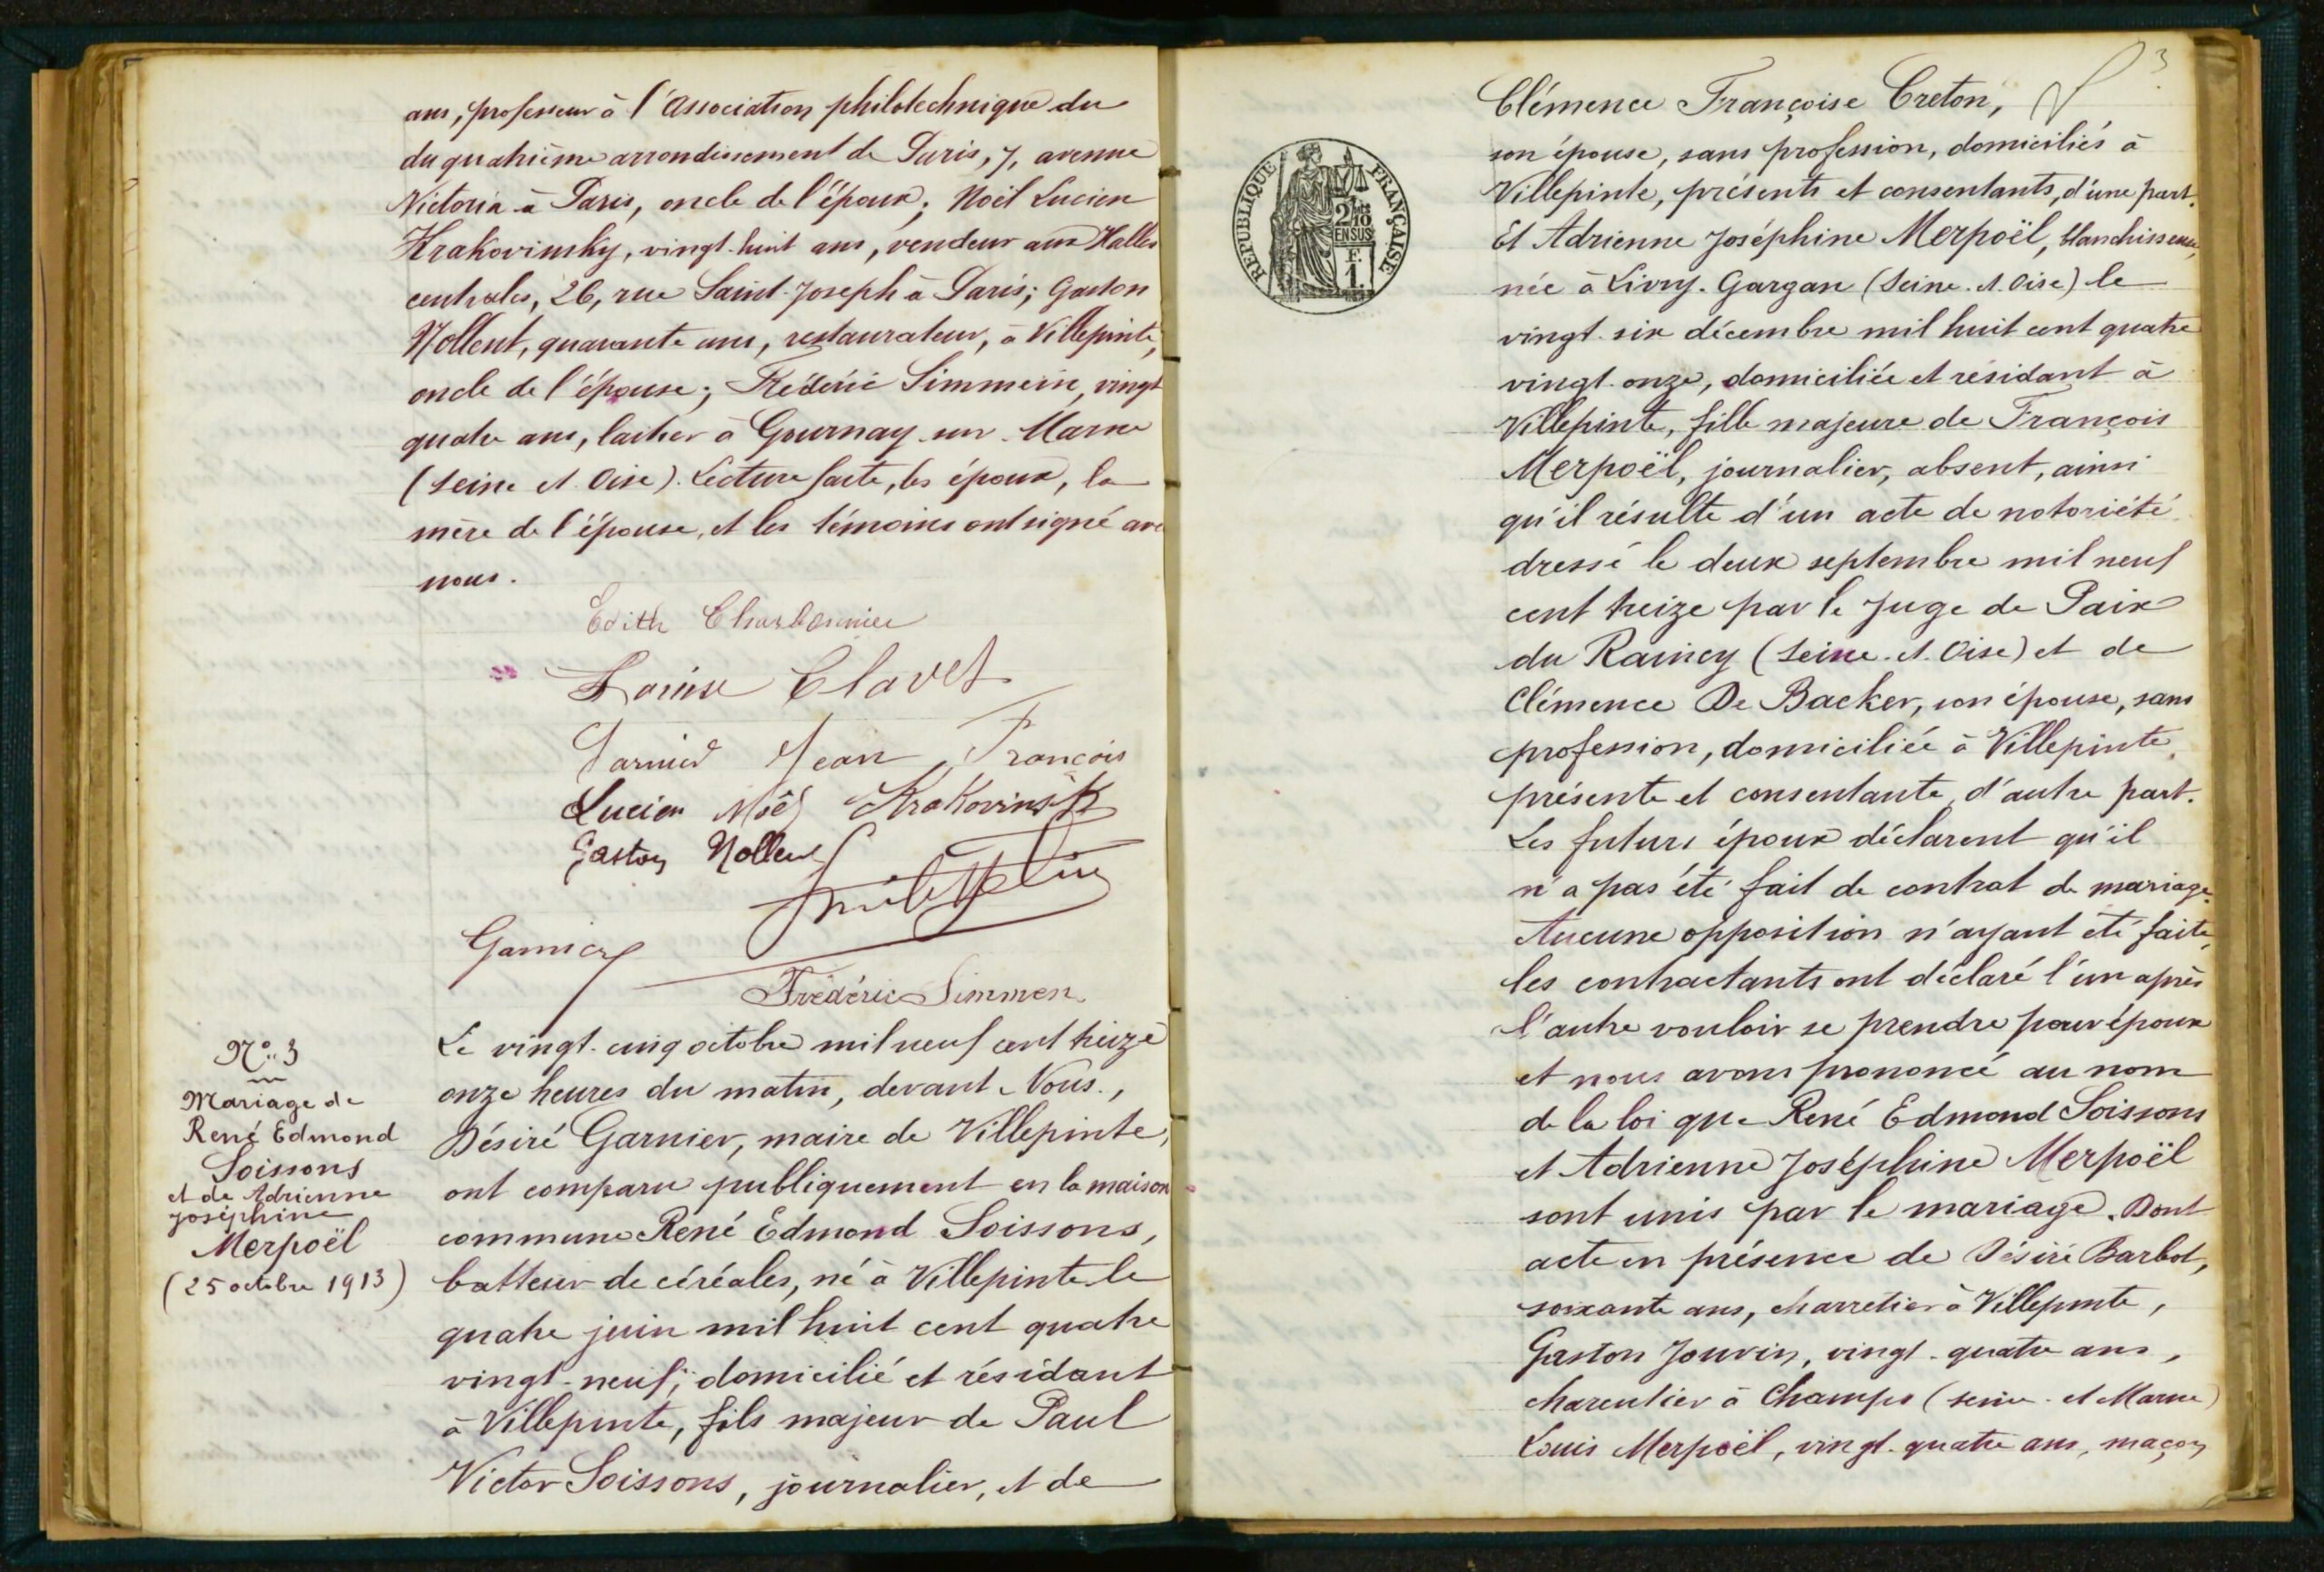 ans, professeur à l'Association philotechnique du
du quatrième arrondissement de Paris, 7, avenue
Victoria à Paris, oncle de l'époux; Noël Lucien
Krakovinsky, vingt-huit ans, vendeur aux Halles
centrales, 26, rue Saint-Joseph à Paris; Gaston
Nollent, quarante ans, restaurateur, à Villepinte,
oncle de l'épouse; Frédéric Simmein, vingt
quatre ans, laitier à Gournay sur Marne
(Seine et Oise). Lecture faite, les époux, la
mère de l'épouse, et les témoins ont signé avec
nous.
Edith Charbonnier
Louise Clavet
Jean François
Lucien Noël Krakovinsky
Gaston Nollent
Garnier
Frédéric Simmen
N° 3
Mariage de
René Edmond
Soissons
et de Adrienne
Joséphine
Merpoël
(25 octobre 1913)
Le vingt-cinq octobre mil neuf cent treize
onze heures du matin, devant Nous,
Désiré Garnier, maire de Villepinte,
ont comparu publiquement en la maison
commune René Edmond Soissons,
batteur de céréales, né à Villepinte le
quatre juin mil huit cent quatre
vingt-neuf, domicilié et résidant
à Villepinte, fils majeur de Paul
Victor Soissons, journalier, et de
3
REPUBLIQUE FRANÇAISE
2/10
EN SUS
F.
1.
Clémence Françoise Creton,
son épouse, sans profession, domiciliés à
Villepinte, présents et consentants, d'une part.
Et Adrienne Joséphine Merpoël, blanchisseuse,
née à Livry-Gargan (Seine-et-Oise) le
vingt-six décembre mil huit cent quatre
vingt-onze, domiciliée et résidant à
Villepinte, fille majeure de François
Merpoël, journalier, absent, ainsi
qu'il résulte d'un acte de notoriété
dressé le deux septembre mil neuf
cent treize par le Juge de Paix
du Raincy (Seine-et-Oise) et de
Clémence De Backer, son épouse, sans
profession, domiciliée à Villepinte,
présente et consentante, d'autre part.
Les futurs époux déclarent qu'il
n'a pas été fait de contrat de mariage.
Aucune opposition n'ayant été faite,
les contractants ont déclaré l'un après
l'autre vouloir se prendre pour époux
et nous avons prononcé au nom
de la loi que René Edmond Soissons
et Adrienne Joséphine Merpoël
sont unis par le mariage. Dont
acte en présence de Désiré Barbot,
soixante ans, charretier à Villepinte,
Gaston Jouvin, vingt-quatre ans,
charcutier à Champs (Seine-et-Marne)
Louis Merpoël, vingt-quatre ans, maçon